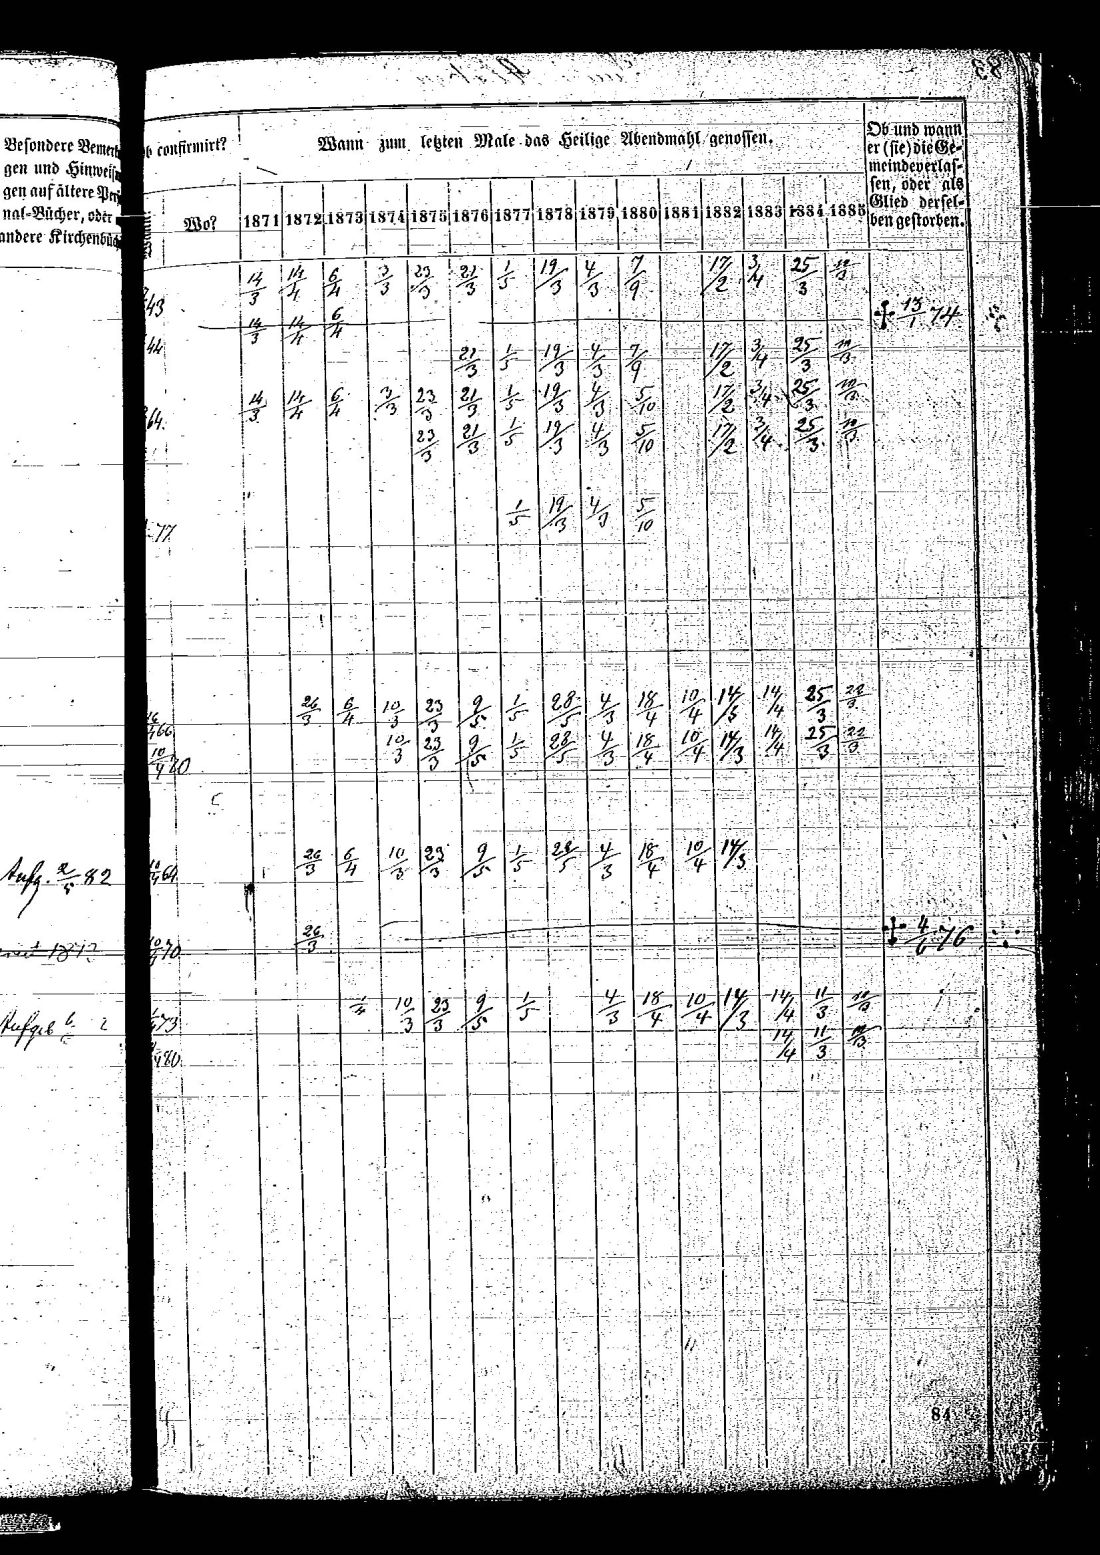 83
Besondere Bemerk
gen und Hinweis
gen auf ältere Per
nal-Bücher, oder
andere Kirchenbüch
confirmirt?
Wo?
Wann zum letzten Male das Heilige Abendmahl genossen.
Ob und wann
er (sie) die Ge-
meinde verlas-
sen, oder als
Glied dersel-
ben gestorben.
1871 1872 1873 1874 1875 1876 1877 1878 1879 1880 1881 1882 1883 1884 1885
43 14/3 14/4 6/4 3/3 23/3 21/3 1/5 19/3 4/3 7/9 17/2 3/4 25/3
14/3 14/4 6/4 † 13/1 74
44 21/3 1/5 19/3 4/3 7/9 17/2 3/4 25/3
64 14/3 14/4 6/4 3/3 23/3 21/3 1/5 19/3 4/3 5/10 17/2 3/4 25/3
23/3 21/3 1/5 19/3 4/3 5/10 17/2 3/4 25/3
77 1/5 19/3 4/3 5/10
66 26/3 6/4 10/3 23/3 9/5 1/5 28/5 4/3 18/4 10/4 14/3 14/4 25/3 22/3
10/4 70 10/3 23/3 9/5 1/5 28/5 4/3 18/4 10/4 14/3 14/4 25/3 22/3
Aufg. 2/5 82 64 26/3 6/4 10/3 23/3 9/5 1/5 28/5 4/3 18/4 10/4 14/3
70 26/3 † 4/6 76
73 1/4 10/3 23/3 9/5 1/5 4/3 18/4 10/4 14/3 14/4 11/3
80 14/4 11/3
84